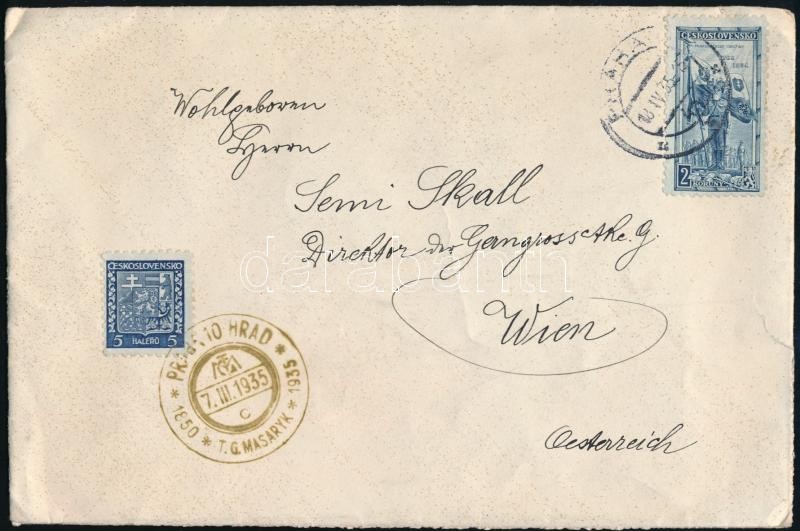 ČESKOSLOVENSKO
2
KORUNY
PRAHA
Wohlgeboren
Herrn
Semi Skall
Direktor der
Wien
Oesterreich
ČESKOSLOVENSKO
5 5
HALÉŘŮ
PRAHA 10 HRAD
7.III.1935
C
* 1850 * T.G. MASARYK * 1935 *
darabanth